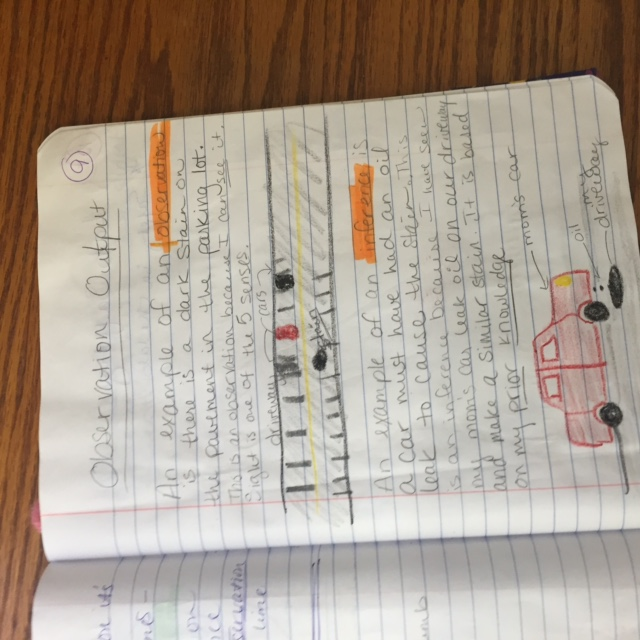 9
Observation Output
An example of an observation
is there is a dark stain on
the pavement in the parking lot.
This is an observation because I can see it.
Sight is one of the 5 senses
cars
An example of an inference is
a car must have had an oil
leak to cause the stain. This
is an inference because I have seen
my mom's car leak oil on our driveway
and make a similar stain. It is based
on my prior knowledge
mom's car
oil
driveway